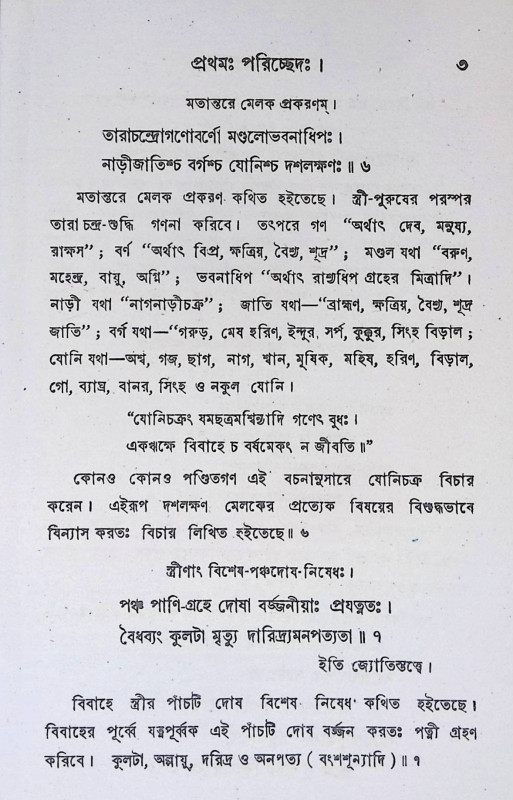 প্রথমঃ পরিচ্ছেদঃ। ৩
মতান্তরে মেলক প্রকরণম্।
তারাচন্দ্রোগণোবর্ণো মণ্ডলোভবনাধিপঃ।
নাড়ীজাতিশ্চ বর্গশ্চ যোনিশ্চ দশলক্ষণঃ॥ ৬
মতান্তরে মেলক প্রকরণ কথিত হইতেছে। স্ত্রী-পুরুষের পরস্পর
তারা চন্দ্র-শুদ্ধি গণনা করিবে। তৎপরে গণ “অর্থাৎ দেব, মনুষ্য,
রাক্ষস”; বর্ণ “অর্থাৎ বিপ্র, ক্ষত্রিয়, বৈশ্য, শূদ্র”; মণ্ডল যথা “বরুণ,
মহেন্দ্র, বায়ু, অগ্নি”; ভবনাধিপ “অর্থাৎ রাশ্যধিপ গ্রহের মিত্রাদি”।
নাড়ী যথা “নাগনাড়ীচক্র”; জাতি যথা—“ব্রাহ্মণ, ক্ষত্রিয়, বৈশ্য, শূদ্র
জাতি”; বর্গ যথা—“গরুড়, মেষ হরিণ, ইন্দুর, সর্প, কুক্কুর, সিংহ বিড়াল;
যোনি যথা—অশ্ব, গজ, ছাগ, নাগ, শ্বান, মূষিক, মহিষ, হরিণ, বিড়াল,
গো, ব্যাঘ্র, বানর, সিংহ ও নকুল যোনি।
“যোনিচক্রং যমছত্রমশ্বিন্যাদি গণেৎ বুধঃ।
একঋক্ষে বিবাহে চ বর্ষমেকং ন জীবতি॥”
কোনও কোনও পণ্ডিতগণ এই বচনানুসারে যোনিচক্র বিচার
করেন। এইরূপ দশলক্ষণ মেলকের প্রত্যেক বিষয়ের বিশুদ্ধভাবে
বিন্যাস করতঃ বিচার লিখিত হইতেছে॥ ৬
স্ত্রীণাং বিশেষ-পঞ্চদোষ-নিষেধঃ।
পঞ্চ পাণি-গ্রহে দোষা বর্জ্জনীয়াঃ প্রযত্নতঃ।
বৈধব্যং কুলটা মৃত্যু দারিদ্র্যমনপত্যতা॥ ৭
ইতি জ্যোতিস্তত্ত্বে।
বিবাহে স্ত্রীর পাঁচটি দোষ বিশেষ নিষেধ কথিত হইতেছে।
বিবাহের পূর্ব্বে যত্নপূর্ব্বক এই পাঁচটি দোষ বর্জ্জন করতঃ পত্নী গ্রহণ
করিবে। কুলটা, অল্পায়ু, দরিদ্র ও অনপত্য (বংশশূন্যাদি)॥ ৭